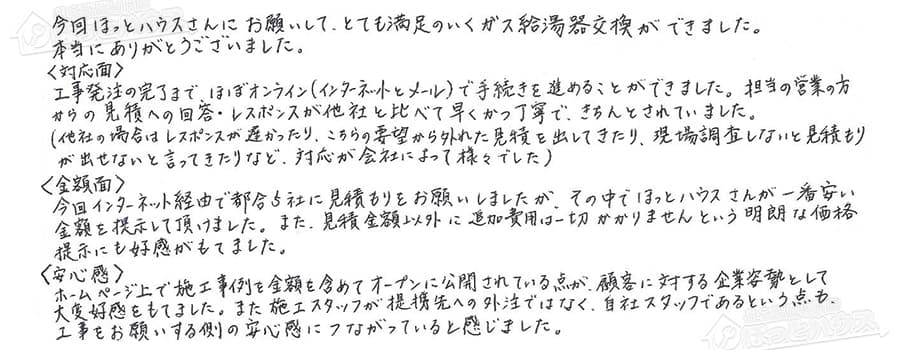 今回ほっとハウスさんにお願いして、とても満足のいくガス給湯器交換ができました。
本当にありがとうございました。
〈対応面〉
工事発注の完了まで、ほぼオンライン(インターネットとメール)で手続きを進めることができました。担当の営業の方
からの見積への回答・レスポンスが他社と比べて早くかつ丁寧で、きちんとされていました。
(他社の場合はレスポンスが遅かったり、こちらの要望から外れた見積を出してきたり、現場調査しないと見積もり
が出せないと言ってきたりなど、対応が会社によって様々でした)
〈金額面〉
今回インターネット経由で都合5社に見積もりをお願いしましたが、その中でほっとハウスさんが一番安い
金額を提示して頂けました。また、見積金額以外に追加費用は一切かかりませんという明朗な価格
提示にも好感がもてました。
〈安心感〉
ホームページ上で施工事例を金額を含めてオープンに公開されている点が、顧客に対する企業姿勢として
大変好感をもてました。また施工スタッフが提携先への外注ではなく、自社スタッフであるという点も、
工事をお願いする側の安心感につながっていると感じました。
ほっとハウス